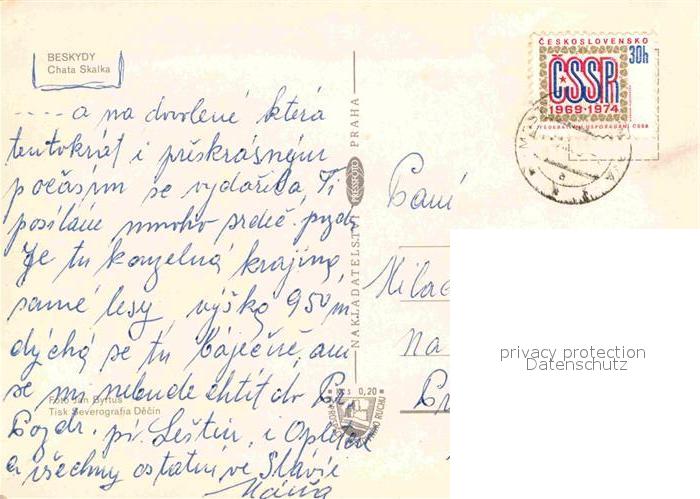 BESKYDY
Chata Skalka
.... a na dovolené která
tentokrát i překrásným
počasím se vydařila Ti
posíláme mnoho srdeč. pozdr.
Je tu kouzelná krajina
samé lesy výška 950 m
dýchá se tu báječně, ani
se mi nebude chtít do
Pozdr. př. Leštin, i
a všechny ostatní ve Slávii
Máňa
Foto Jan Byrtus
Tisk Severografia Děčín
NAKLADATELSTVÍ PRESSFOTO PRAHA
Kčs 0,20
ČESKOSLOVENSKO
30h
ČSSR
1969-1974
FEDERATIVNÍ USPOŘÁDÁNÍ ČSSR
Paní
na
privacy protection
Datenschutz